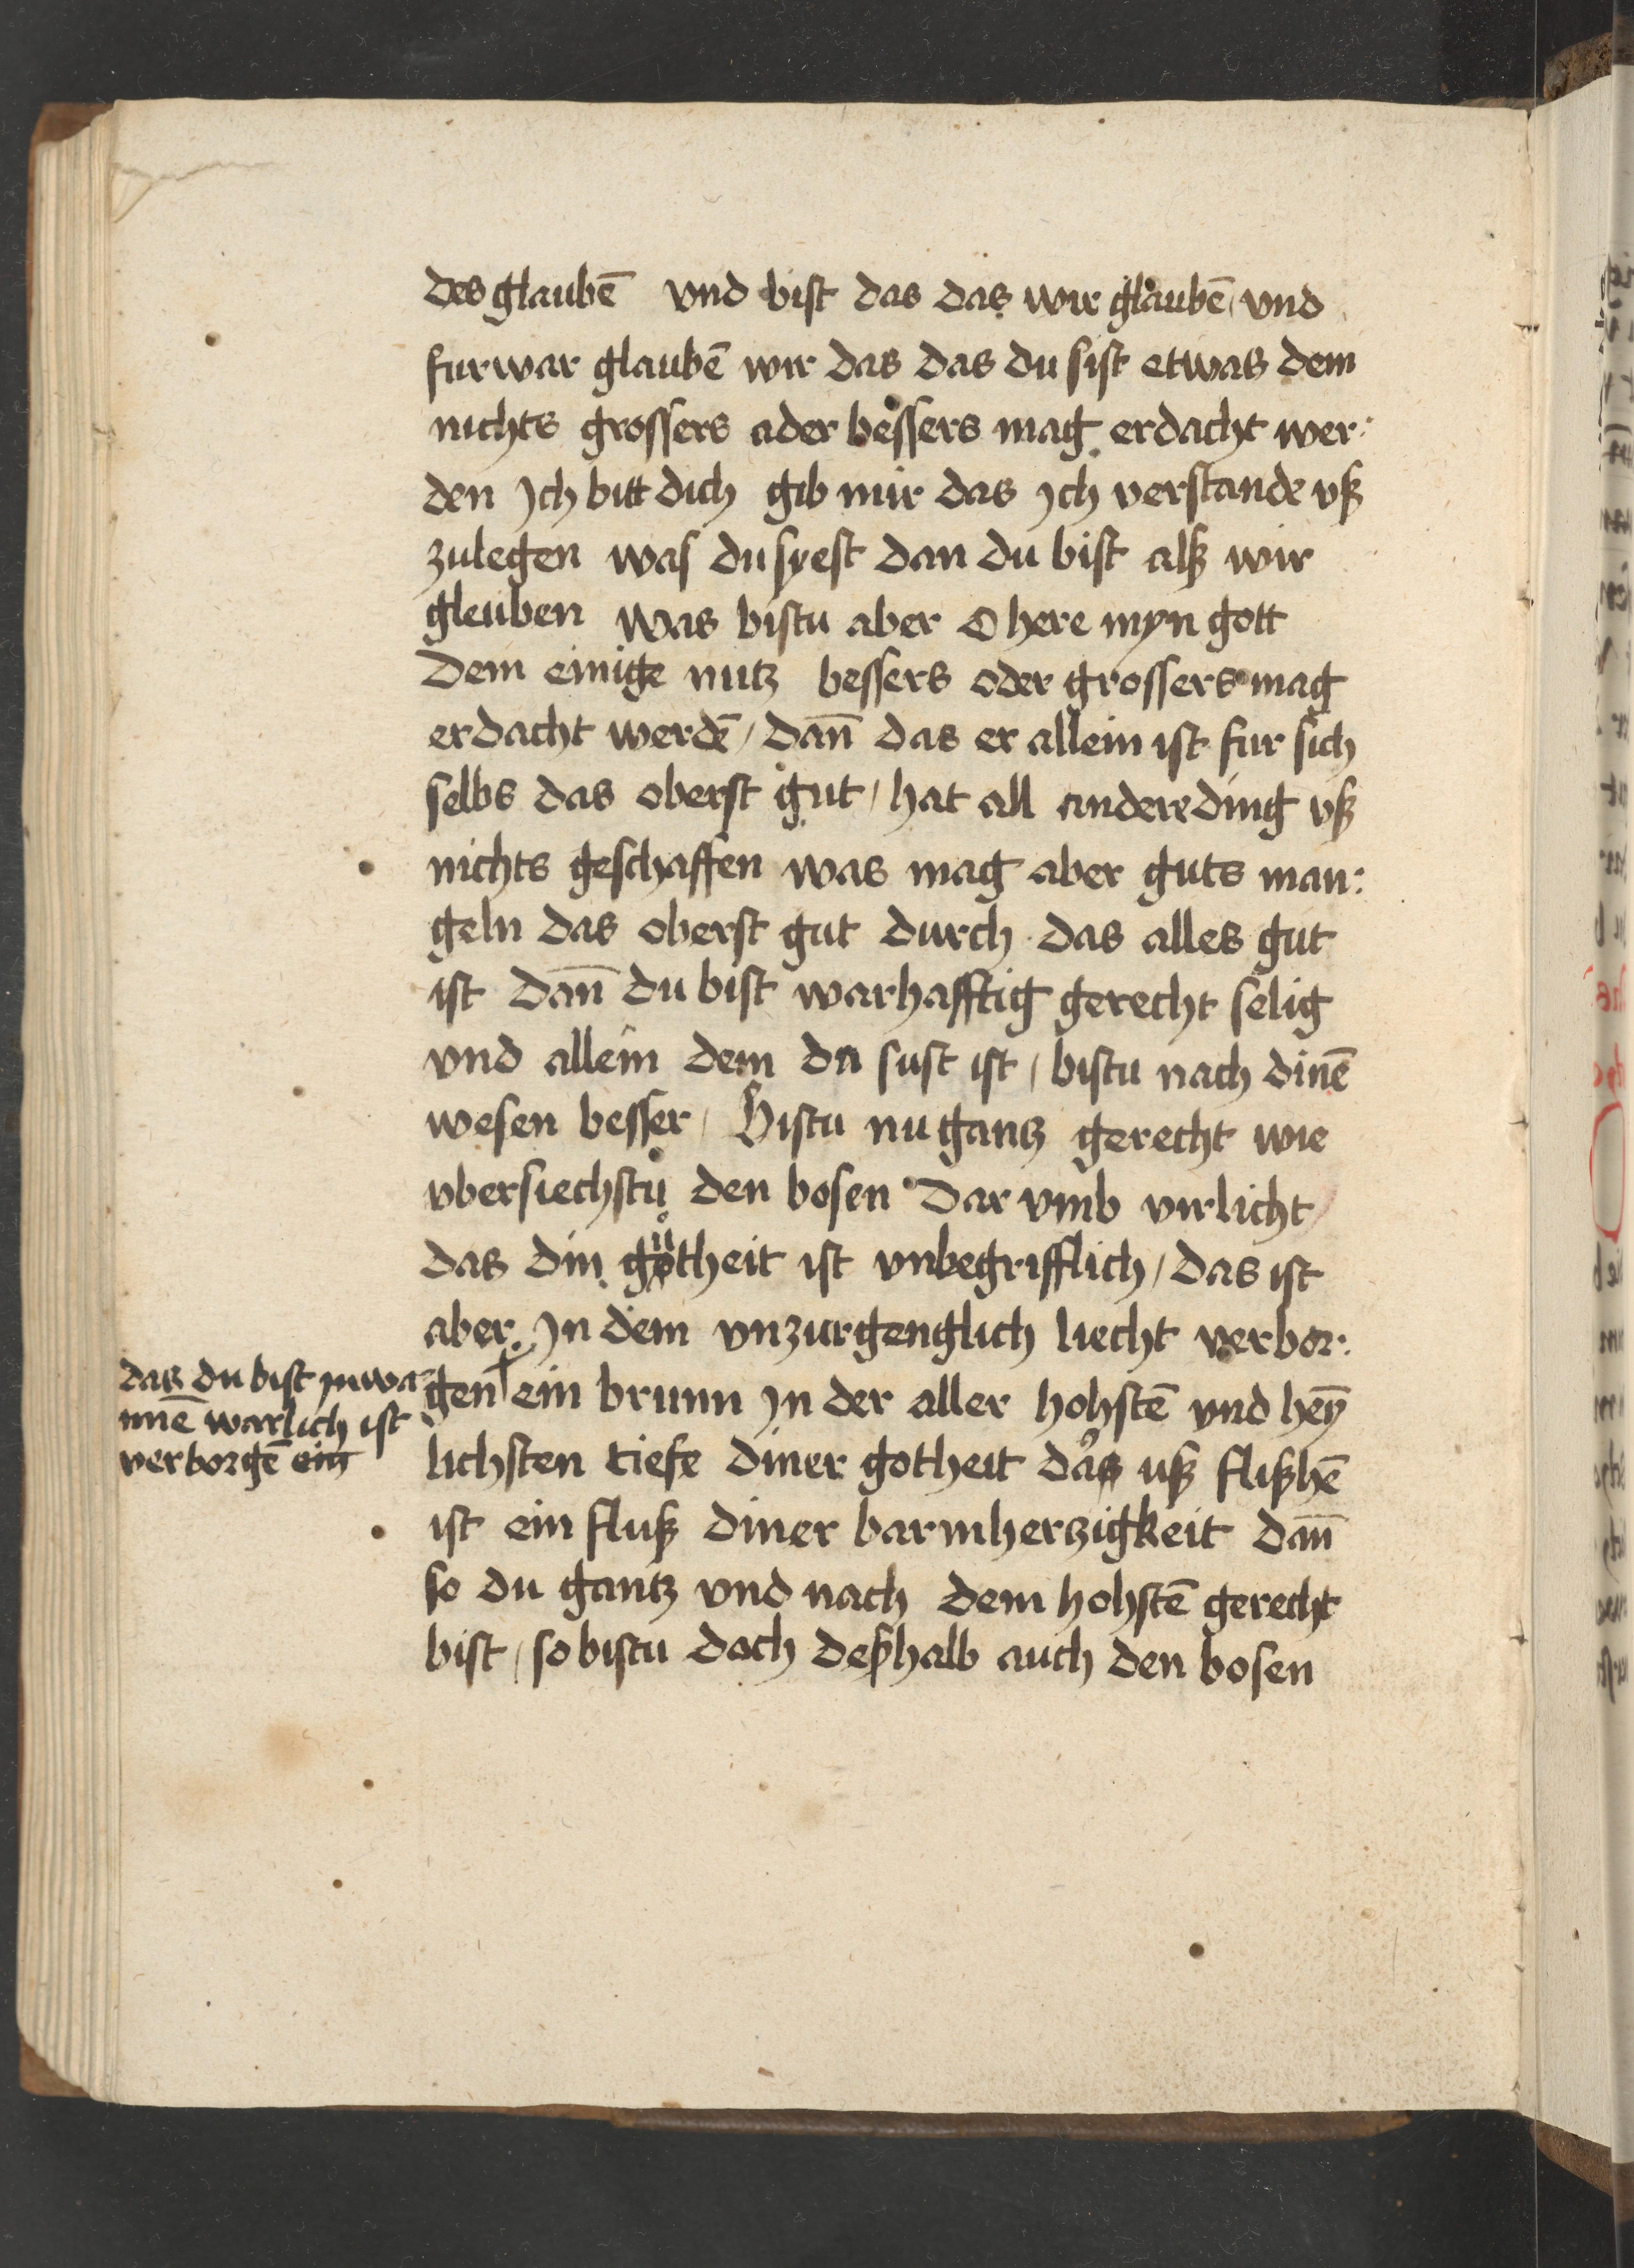 des glaubē vnd bist das das wir glaubē / vnd
furwar glaubē wir das das du sist etwas dem
nichts grossers ader bessers mag erdacht wer:
den Jch bitt dich gib mir das Jch verstande vß
zulegen was du syest dan du bist alß wir
gleuben was bistu aber O here myn gott
Dem einige nutz bessers oder grossers mag
erdacht werdē / dan̄ das er allein ist fur sich
selbs das oberst gut / hat all andere ding vß
nichts geschaffen was mag aber guts man:
geln das oberst gut durch das alles gut
ist dan̄ du bist warhafftig gerecht selig
vnd allein dem da sust ist / bistu nach dinē
wesen besser / Bistu nu gantz gerecht wie
vbersiechstu den bosen Dar vmb virlicht
das din gutheit ist vnbegrifflich / das ist
aber Jn dem vnzurgenglich liecht verbor:
das du bist Jn wa
mē warlich ist
verborgē ein
gen ein brunn Jn der aller hohstē vnd heȳ
lichsten tiefe diner gotheit das uß flißhē
ist ein fluß diner barmherzigkeit dan̄
so du gantz vnd nach dem hohstē gerecht
bist / so bistu doch deßhalb auch den bosen